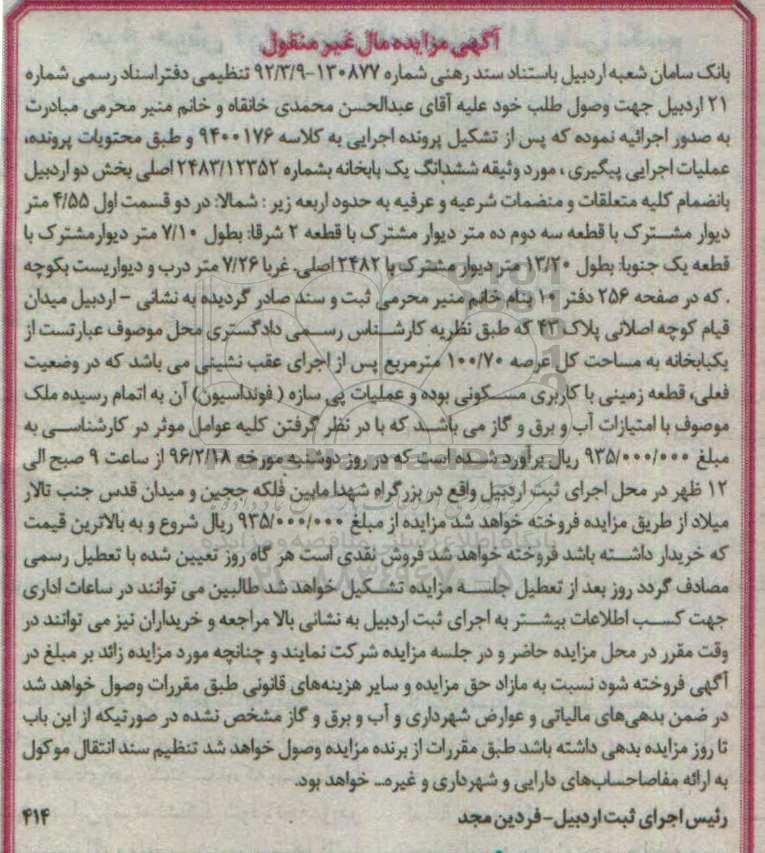 آگهی مزایده مال غیر منقول
بانک سامان شعبه اردبیل باستناد سند رهنی شماره ۱۳۰۸۷۷-۹۲/۳/۹ تنظیمی دفتر اسناد رسمی شماره
۲۱ اردبیل جهت وصول طلب خود علیه آقای عبدالحسن محمدی خانقاه و خانم منیر محرمی مبادرت
به صدور اجرائیه نموده که پس از تشکیل پرونده اجرایی به کلاسه ۹۴۰۰۱۷۶ و طبق محتویات پرونده،
عملیات اجرایی پیگیری ، مورد وثیقه ششدانگ یک بابخانه بشماره ۲۴۸۳/۱۲۳۵۲ اصلی بخش دو اردبیل
بانضمام کلیه متعلقات و منضمات شرعیه و عرفیه به حدود اربعه زیر : شمالا: در دو قسمت اول ۴/۵۵ متر
دیوار مشترک با قطعه سه دوم ده متر دیوار مشترک با قطعه ۲ شرقا: بطول ۷/۱۰ متر دیوار مشترک با
قطعه یک جنوبا: بطول ۱۳/۲۰ متر دیوار مشترک با ۲۴۸۲ اصلی، غربا ۷/۲۶ متر درب و دیواریست بکوچه
. که در صفحه ۲۵۶ دفتر ۱۰ بنام خانم منیر محرمی ثبت و سند صادر گردیده به نشانی - اردبیل میدان
قیام کوچه اصلانی پلاک ۴۳ که طبق نظریه کارشناس رسمی دادگستری محل موصوف عبارتست از
یکبابخانه به مساحت کل عرصه ۱۰۰/۷۰ مترمربع پس از اجرای عقب نشینی می باشد که در وضعیت
فعلی، قطعه زمینی با کاربری مسکونی بوده و عملیات پی سازه (فونداسیون) آن به اتمام رسیده ملک
موصوف با امتیازات آب و برق و گاز می باشد که با در نظر گرفتن کلیه عوامل موثر در کارشناسی به
مبلغ ۹۳۵/۰۰۰/۰۰۰ ریال برآورد شده است که در روز دوشنبه مورخه ۹۶/۲/۱۸ از ساعت ۹ صبح الی
۱۲ ظهر در محل اجرای ثبت اردبیل واقع در بزرگراه شهدا مابین فلکه ججین و میدان قدس جنب تالار
میلاد از طریق مزایده فروخته خواهد شد مزایده از مبلغ ۹۳۵/۰۰۰/۰۰۰ ریال شروع و به بالاترین قیمت
که خریدار داشته باشد فروخته خواهد شد فروش نقدی است هر گاه روز تعیین شده با تعطیل رسمی
مصادف گردد روز بعد از تعطیل جلسه مزایده تشکیل خواهد شد طالبین می توانند در ساعات اداری
جهت کسب اطلاعات بیشتر به اجرای ثبت اردبیل به نشانی بالا مراجعه و خریداران نیز می توانند در
وقت مقرر در محل مزایده حاضر و در جلسه مزایده شرکت نمایند و چنانچه مورد مزایده زائد بر مبلغ در
آگهی فروخته شود نسبت به مازاد حق مزایده و سایر هزینه‌های قانونی طبق مقررات وصول خواهد شد
در ضمن بدهی‌های مالیاتی و عوارض شهرداری و آب و برق و گاز مشخص نشده در صورتیکه از این باب
تا روز مزایده بدهی داشته باشد طبق مقررات از برنده مزایده وصول خواهد شد تنظیم سند انتقال موکول
به ارائه مفاصاحساب‌های دارایی و شهرداری و غیره... خواهد بود.
رئیس اجرای ثبت اردبیل-فردین مجد
۴۱۴